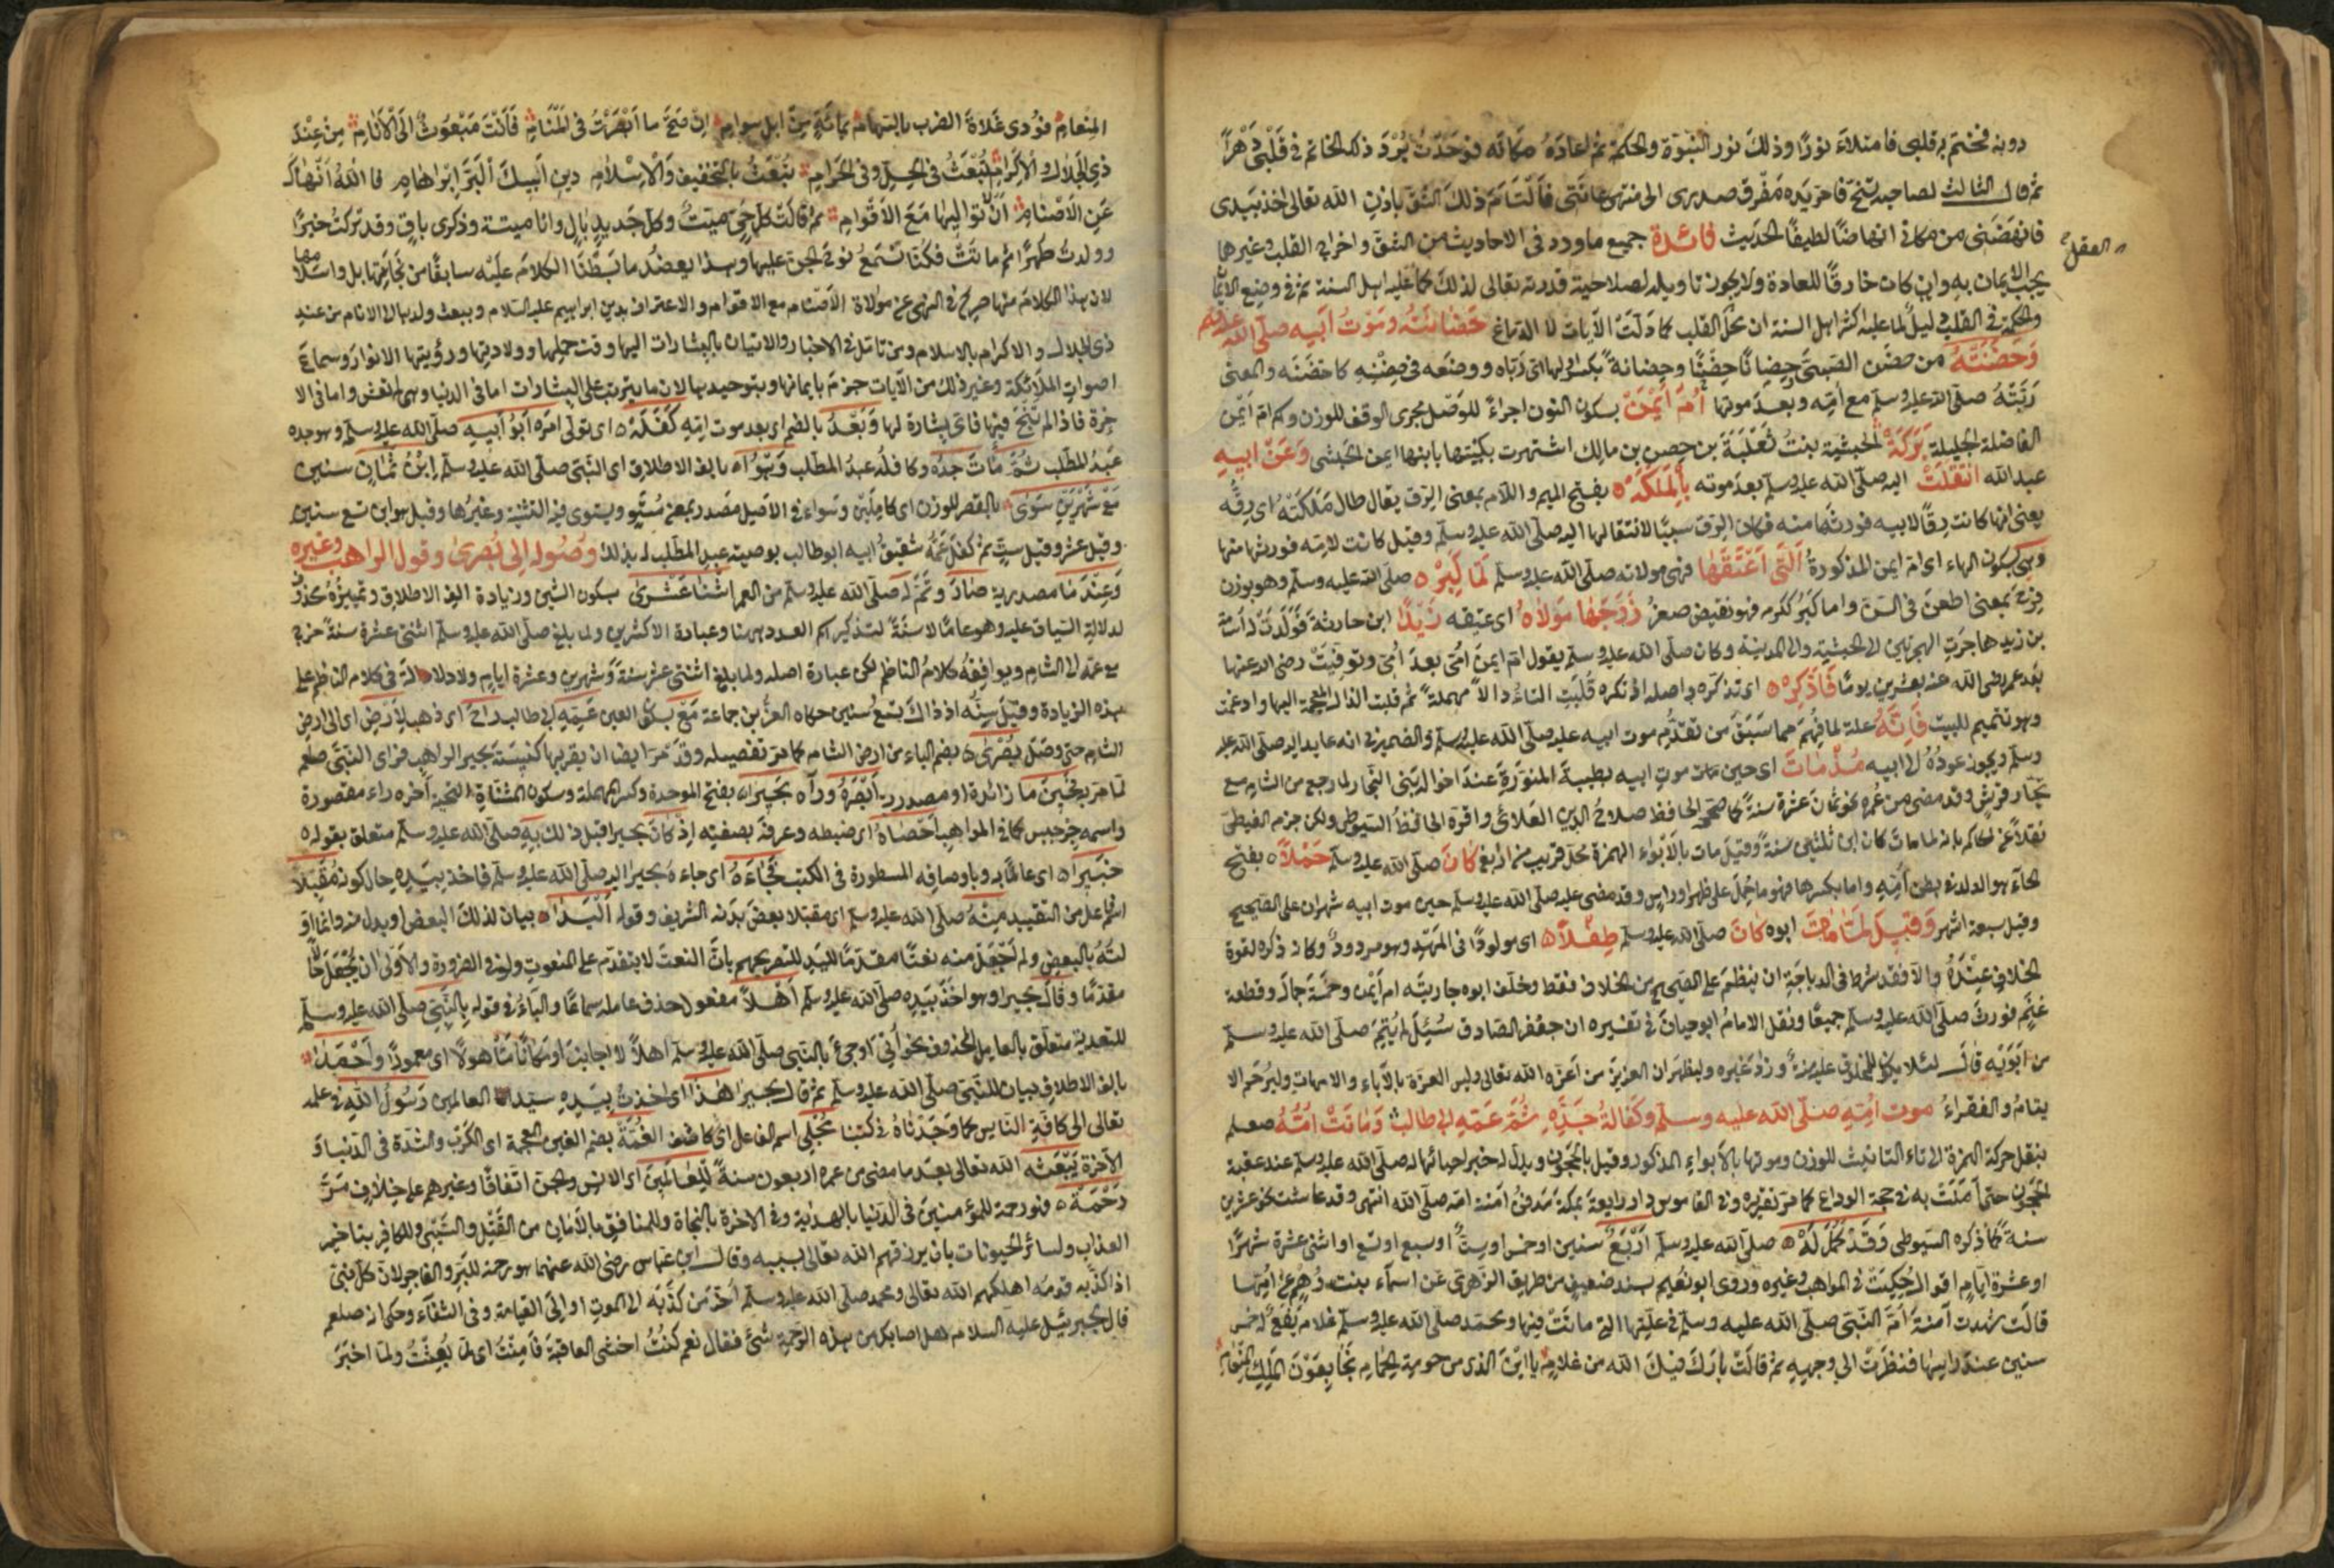 دونه فختم به قلبي فامتلاء نورًا وذلك نور النبوة والحكمة ثم اعاده مكانه فوجدت برد ذلك الخاتم في قلبي دهرًا
ثم قال الثالث لصاحبه تنح فامر يده مفرق صدري الى منتهى عانتي فالتام ذلك الشق باذن الله تعالى اخذ بيدي
فانهضني من مكاني انهاضًا لطيفًا الحديث فائدة جميع ما ورد في الاحاديث من الشق واخراج القلب وغيرها
العقل
يجب الايمان به وان كان خارقًا للعادة ولا يجوز تاويله لصلاحية قدرته تعالى لذلك كما عليه اهل السنة ثم في وضع الايمان
والحكمة في القلب دليل لما عليه اكثر اهل السنة ان محل القلب كما دلت الآيات لا الدماغ حضانته وموت ابيه صلى الله عليه وسلم
وحضنته من حضن الصبي حضانًا حضنًا وحضانة بكسر اولها اي رباه ووضعه في حضنه كاحتضنه والمعنى
ربته صلى الله عليه وسلم مع امه وبعد موتها ام ايمن بسكون النون اجراء للوصل مجرى الوقف للوزن وهي ام ايمن
الفاضلة الجليلة بركة الحبشية بنت ثعلبة بن حصن بن مالك اشتهرت بكنيتها بابنها ايمن الحبشي وعن ابيه
عبد الله انتقلت اليه صلى الله عليه وسلم بعد موته بالملكه بفتح الميم واللام بمعنى الرق يقال طال ملكته اي رقه
يعني انها كانت رقًا لابيه فورثها منه فكان الرق سببًا لانتقالها اليه صلى الله عليه وسلم وقيل كانت لامه فورثها منها
وهي بسكون الهاء اي ام ايمن المذكورة التي اعتقها فهي مولاته صلى الله عليه وسلم لما كبر صلى الله عليه وسلم وهو بوزن
فرح بمعنى اطعن في السن واما كبر ككرم فهو نقيض صغر زوجها مولاه اي عتيقه زيدًا ابن حارثة فولدت له اسامة
بن زيد هاجرت الهجرتين الى الحبشة والى المدينة وكان صلى الله عليه وسلم يقول ام ايمن امي بعد امي وتوفيت رضي الله عنها
بعد عمر رضي الله عنه بعشرين يومًا فاذكره اي تذكره واصله اذتكره قلبت التاء دالًا مهملة ثم قلبت الذال المعجمة اليها وادغمت
وهو تتميم للبيت فانه علة لما فهم مما سبق من تقدم موت ابيه عليه صلى الله عليه وسلم والضمير في انه عايد اليه صلى الله عليه
وسلم ويجوز عوده الى ابيه مذ مات اي حين مات موت ابيه بطيبة المنورة عند اخواله بني النجار لما رجع من الشام مع
تجار قريش وقد مضى من عمره نحو ثمان عشرة سنة كما صححه الحافظ صلاح الدين العلائي واقره الحافظ السيوطي ولكن جزم الغيطي
نقلًا عن الحاكم بانه لما مات كان ابن ثلثين سنة وقيل مات بالابواء الهمزة محل قريب من رابغ كان صلى الله عليه وسلم حملًا بفتح
الحاء هو الولد في بطن امه واما بكسرها فهو ما حمل على ظهر او راس وقد مضى عليه صلى الله عليه وسلم حين موت ابيه شهران على الصحيح
وقيل سبعة اشهر وقيل لما مات ابوه كان صلى الله عليه وسلم طفلًا اي مولودًا في المهد وهو مردود وكان ذكره لقوة
الخلاف عنده والا فقد شرط في الديباجة ان ينظم على الصحيح من الخلاف فقط وخلف ابوه جاريته ام ايمن وخمسة جمال وقطعة
غنم فورث صلى الله عليه وسلم جميعًا ونقل الامام ابو حيان في تفسيره ان جعفر الصادق سئل لم يتم صلى الله عليه وسلم
من ابويه قال لئلا يكون للمخلوق عليه منة وزاد غيره وليظهر ان العزيز من اعزه الله تعالى وليس العزة بالآباء والامهات وليرحم الا
يتام والفقراء موت امه صلى الله عليه وسلم وكفالة جده ثم عمه ابي طالب وماتت امه صلعم
بنقل حركة الهمزة الى تاء التانيث للوزن وموتها بالابواء المذكور وقيل بالحجون ويدل له خبر احيائها له صلى الله عليه وسلم عند عقبة
الحجون حتى آمنت به في حجة الوداع كما مر تقريره وفي القاموس دار رايعة بمكة مدفن آمنة امه صلى الله انتهى وقد عاشت نحو عشرين
سنة كما ذكره السيوطي وقد كمل له صلى الله عليه وسلم اربع سنين او خمس او ست او سبع او تسع او اثني عشرة شهرًا
او عشرة ايام اقوال حكيت في المواهب وغيره وروى ابو نعيم بسند ضعيف من طريق الزهري عن اسماء بنت رهم عن امها
قالت شهدت آمنة ام النبي صلى الله عليه وسلم في علتها التي ماتت فيها ومحمد صلى الله عليه وسلم غلام يفع له خمس
سنين عند راسها فنظرت الى وجهه ثم قالت بارك فيك الله من غلام يا ابن الذي من حومة الحمام نجا بعون الملك المنعام
المنعام فودي غداة الضرب بالسهام بمائة من ابل سوام ان صح ما ابصرت في المنام فانت مبعوث الى الانام من عند
ذي الجلال والاكرام تبعث في الحل وفي الحرام تبعث بالتخفيف والاسلام دين ابيك البر ابراهام فالله انهاك
عن الاصنام ان لا تواليها مع الاقوام ثم قالت كل حي ميت وكل جديد بال وانا ميتة وذكري باق وقد تركت خيرًا
وولدت طهرًا ثم ماتت فكنا نسمع نوح الجن عليها وهذا يعضد ما بسطنا الكلام عليه سابقًا من نجاتهما بل واسلامهما
لان هذا الكلام منها صريح في النهي عن موالاة الاصنام مع الاقوام والاعتراف بدين ابراهيم عليه السلام وببعث ولدها الى الانام من عند
ذي الجلال والاكرام بالاسلام ومن تامل في الاخبار والاتيان بالبشارات اليها وقت حملها وولادتها ورؤيتها الانوار وسماع
اصوات الملائكة وغير ذلك من الآيات جزم بايمانها وبتوحيدها لان ما يترتب على البشارات اما في الدنيا وهي لم تعش واما في الا
خرة فاذا لم تنج فيها فاي بشارة لها وبعد بالضم اي بعد موت امه كفله اي تولى امره ابو ابيه صلى الله عليه وسلم وهو جده
عبد المطلب ثم مات جده وكافله عبد المطلب وهوا بالف الاطلاق اي النبي صلى الله عليه وسلم ابن ثمان سنين
مع شهرين سوى بالقصر للوزن اي كاملين وسواء في الاصل مصدر بمعنى مستو ويستوي فيه التثنية وغيرها وقيل هو ابن تسع سنين
وقيل عشر وقيل ست ثم كفل عمه شقيق ابيه ابو طالب بوصية عبد المطلب له بذلك وصوله الى بصرى وقول الراهب وغيره
وعند ما مصدرية صار وتم له صلى الله عليه وسلم من العمر اثنتا عشرى بسكون الشين وزيادة الف الاطلاق وتمييزه محذوف
لدلالة السياق عليه وهو عامًا لا سنة لتذكير اسم العدد هنا وعبارة الاكثرين ولما بلغ صلى الله عليه وسلم اثنتي عشرة سنة خرج
مع عمه الى الشام ويوافقه كلام الناظم لكن عبارة اصله ولما بلغ اثنتي عشر سنة وشهرين وعشرة ايام ولا دلالة في كلام الناظم على
هذه الزيادة وقيل سنه اذ ذاك تسع سنين حكاه العز بن جماعة مع بسكون العين عمه ابي طالب راح اي ذهب لارض اي الى ارض
الشام حتى وصل بصرى بضم الباء من ارض الشام كما مر تفصيله وقد مر ايضا ان بقربها كنيسة بحيرا الراهب فراى النبي صلعم
لما مر بحين ما زائدة او مصدرية ابصره ورآه بحيرا بفتح الموحدة وكسر المهملة وسكون المثناة التحتية آخره راء مقصورة
واسمه جرجيس كما في المواهب احصاه اي ضبطه وعرفه بصفته اذ كان بحيرا قبل ذلك به صلى الله عليه وسلم متعلق بقوله
خبيرا اي عالمًا به وباوصافه المسطورة في الكتب فجاءه اي جاءه بحيرا اليه صلى الله عليه وسلم فاخذ بيده حال كونه مقبلًا
اسم فاعل من التقبيد منه صلى الله عليه وسلم اي مقبلا بعض بدنه الشريف وقوله اليدا بيان لذلك البعض او بدل منه وانما او
لته بالبعض ولم تجعل منه نعتًا مقدمًا لليد لتصريحهم بان النعت لا يتقدم على المنعوت ولو في الضرورة والاولى ان يجعل حالًا
مقدمًا وقال بحيرا وهو اخذ بيده صلى الله عليه وسلم اهلًا مفعول حذف عامله سماعًا والباء في قوله بالنبي صلى الله عليه وسلم
للتعدية متعلق بالعامل المحذوف نحو أُتي او جيء بالنبي صلى الله عليه وسلم اهلًا لا اجانب او مكانًا ماهولًا اي معمورًا واحمدا
بالف الاطلاق بيان للنبي صلى الله عليه وسلم ثم قال بحيرا هذا اي اخذت بيده سيد العالمين رسول الله في علمه
تعالى الى كافة الناس كما وجدناه في كتبنا مجلي اسم الفاعل اي كاشف الغمة بضم الغين المعجمة اي الكرب والشدة في الدنيا و
الآخرة يبعثه الله تعالى بعد ما مضى من عمره اربعون سنة للعالمين اي الانس والجن اتفاقًا وغيرهم على خلاف مر
رحمة فهو رحمة للمؤمنين في الدنيا بالهداية وفي الآخرة بالنجاة وللمنافق بالامان من القتل والسبي وللكافر بتاخير
العذاب ولسائر الحيوانات بان يرزقهم الله تعالى بسببه وقال ابن عباس رضي الله عنهما هو رحمة للبر والفاجر لان كل نبي
اذا كذبه قومه اهلكهم الله تعالى ومحمد صلى الله عليه وسلم اخر من كذبه الى الموت او الى القيامة وفي الشفاء وحكي انه صلعم
قال لجبريئل عليه السلام هل اصابك من هذه الرحمة شئ فقال نعم كنت اخشى العاقبة فامنت اي لم بعثت ولما اخبر